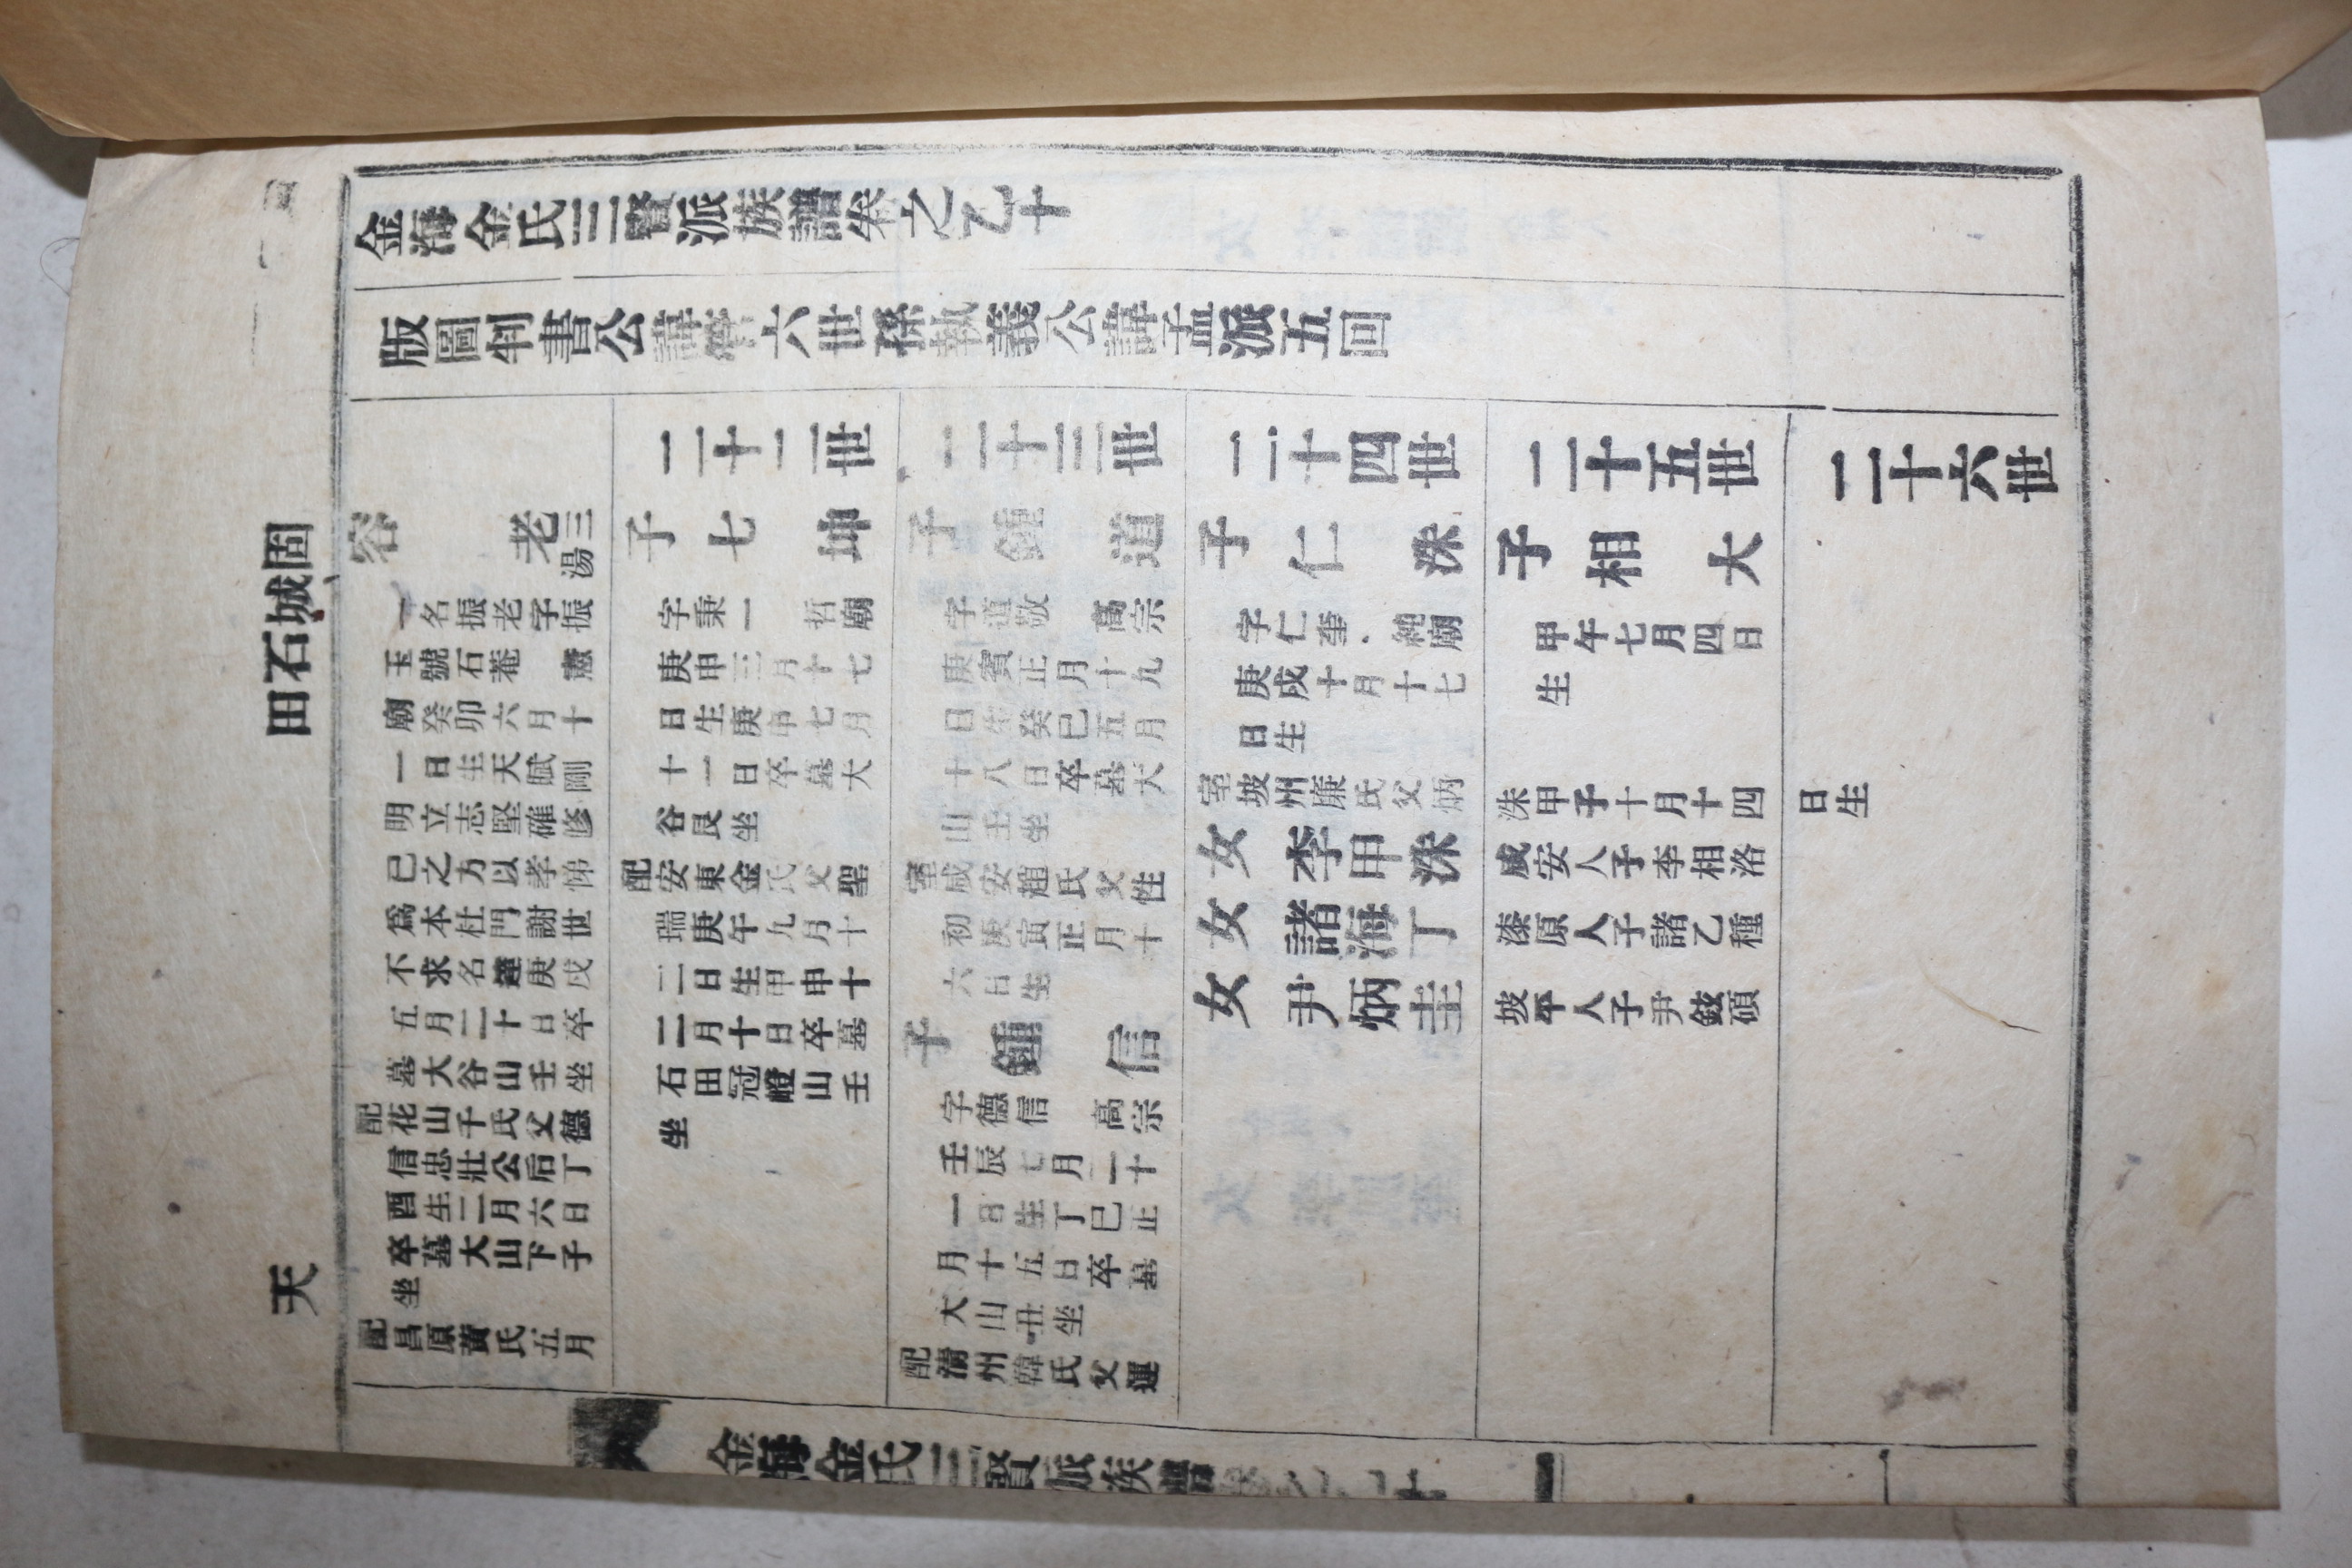 金海金氏三賢派族譜卷之乙十
版圖判書公諱濬六世孫執義公諱孟派五回
固城石田
天
容老
三湯
一名振老字振
玉號石菴 憲
廟癸卯六月十
一日生天賦剛
明立志堅確修
己之方以孝悌
爲本杜門謝世
不求名鍾庚戌
五月二十日卒
墓大谷山壬坐
配花山千氏父德
信忠壯公后丁
酉生二月六日
卒墓大山下子
坐
配昌原黃氏五月
二十二世
子七坤
字秉一 哲廟
庚申三月十七
日生庚申七月
十一日卒墓大
谷艮坐
配安東金氏父聖
瑞庚午九月十
二日生甲申十
二月十日卒墓
石田冠嶝山壬
坐
二十三世
子鍾道
字道敬 高宗
庚寅正月十九
日生癸巳五月
十八日卒墓大
山壬坐
室咸安趙氏父性
初庚寅正月十
六日生
子鍾信
字德信 高宗
壬辰七月二十
一日生丁巳正
月十五日卒墓
大山丑坐
配淸州韓氏父運
二十四世
子仁洙
字仁奎 純廟
庚戌十月十七
日生
室坡州廉氏父炳
女李甲洙
女諸海丁
女尹炳圭
二十五世
子相大
甲午七月四日
生
洙甲子十月十四
咸安人子李相洛
漆原人子諸乙種
坡平人子尹鉉碩
二十六世
日生
金海金氏三賢派族譜